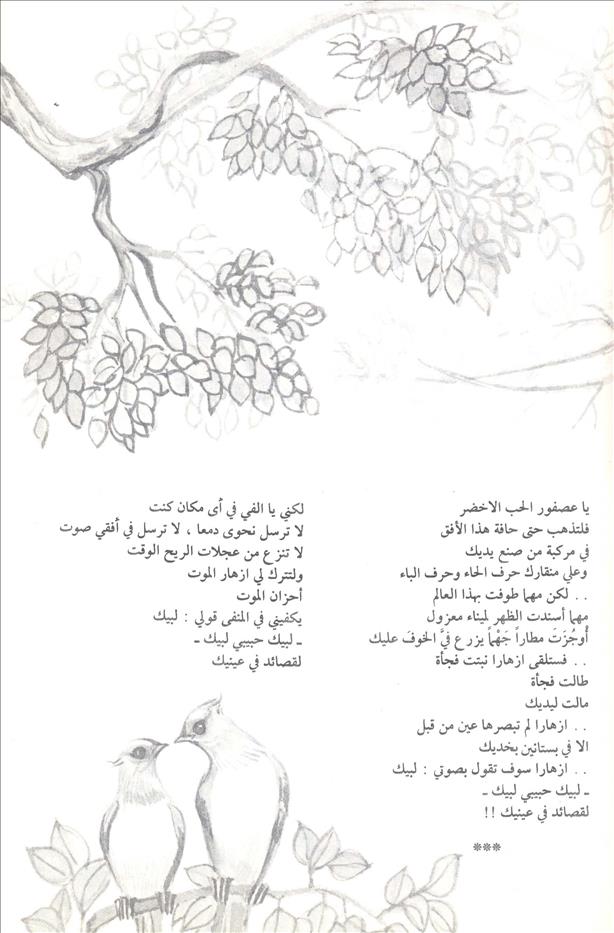 يا عصفور الحب الاخضر
فلتذهب حتى حافة هذا الأفق
في مركبة من صنع يديك
وعلي منقارك حرف الحاء وحرف الباء
. . لكن مهما طوفت بهذا العالم
مهما أسندت الظهر لميناء معزول
أوجُزَتَ مطاراً جَهْماً يزرع فيَّ الخوفَ عليك
. . فستلقى ازهارا نبتت فجأة
طالت فجأة
مالت ليديك
. . ازهارا لم تبصرها عين من قبل
الا في بساتين بخديك
. . ازهارا سوف تقول بصوتي : لبيك
ـ لبيك حبيبي لبيك ـ
لقصائد في عينيك !!
***
لكني يا الفي في أى مكان كنت
لا ترسل نحوى دمعا ، لا ترسل في أفقي صوت
لا تنزع من عجلات الريح الوقت
ولتترك لي ازهار الموت
أحزان الموت
يكفيني في المنفى قولي : لبيك
ـ لبيك حبيبي لبيك ـ
لقصائد في عينيك